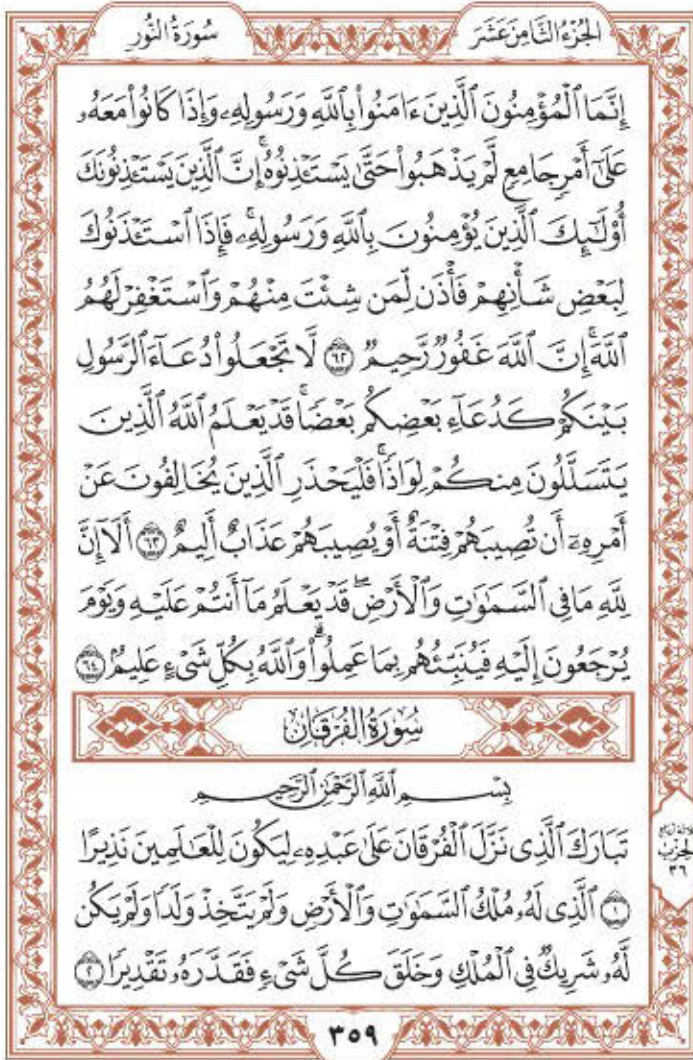 الجُزْءُ الثَّامِنَ عَشَرَ
سُورَةُ النُّورِ
إِنَّمَا ٱلْمُؤْمِنُونَ ٱلَّذِينَ ءَامَنُواْ بِٱللَّهِ وَرَسُولِهِۦ وَإِذَا كَانُواْ مَعَهُۥ
عَلَىٰٓ أَمْرٖ جَامِعٖ لَّمْ يَذْهَبُواْ حَتَّىٰ يَسْتَـْٔذِنُوهُۚ إِنَّ ٱلَّذِينَ يَسْتَـْٔذِنُونَكَ
أُوْلَٰٓئِكَ ٱلَّذِينَ يُؤْمِنُونَ بِٱللَّهِ وَرَسُولِهِۦۚ فَإِذَا ٱسْتَـْٔذَنُوكَ
لِبَعْضِ شَأْنِهِمْ فَأْذَن لِّمَن شِئْتَ مِنْهُمْ وَٱسْتَغْفِرْ لَهُمُ
ٱللَّهَۚ إِنَّ ٱللَّهَ غَفُورٞ رَّحِيمٞ ٦٢ لَّا تَجْعَلُواْ دُعَآءَ ٱلرَّسُولِ
بَيْنَكُمْ كَدُعَآءِ بَعْضِكُم بَعْضٗاۚ قَدْ يَعْلَمُ ٱللَّهُ ٱلَّذِينَ
يَتَسَلَّلُونَ مِنكُمْ لِوَاذٗاۚ فَلْيَحْذَرِ ٱلَّذِينَ يُخَالِفُونَ عَنْ
أَمْرِهِۦٓ أَن تُصِيبَهُمْ فِتْنَةٌ أَوْ يُصِيبَهُمْ عَذَابٌ أَلِيمٌ ٦٣ أَلَآ إِنَّ
لِلَّهِ مَا فِي ٱلسَّمَٰوَٰتِ وَٱلْأَرْضِۖ قَدْ يَعْلَمُ مَآ أَنتُمْ عَلَيْهِ وَيَوْمَ
يُرْجَعُونَ إِلَيْهِ فَيُنَبِّئُهُم بِمَا عَمِلُواْۗ وَٱللَّهُ بِكُلِّ شَيْءٍ عَلِيمُۢ ٦٤
سُورَةُ الفُرْقَانِ
بِسْمِ ٱللَّهِ ٱلرَّحْمَٰنِ ٱلرَّحِيمِ
تَبَارَكَ ٱلَّذِي نَزَّلَ ٱلْفُرْقَانَ عَلَىٰ عَبْدِهِۦ لِيَكُونَ لِلْعَٰلَمِينَ نَذِيرًا
١ ٱلَّذِي لَهُۥ مُلْكُ ٱلسَّمَٰوَٰتِ وَٱلْأَرْضِ وَلَمْ يَتَّخِذْ وَلَدٗا وَلَمْ يَكُن
لَّهُۥ شَرِيكٞ فِي ٱلْمُلْكِ وَخَلَقَ كُلَّ شَيْءٖ فَقَدَّرَهُۥ تَقْدِيرٗا ٢
الحِزْب
٣٦
٣٥٩